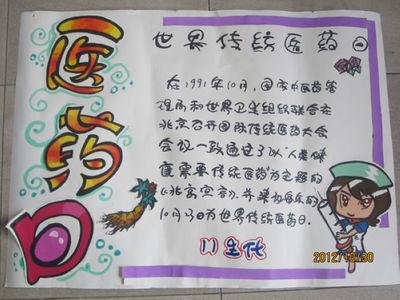 医药日
世界传统医药日
在1991年10月,国家中医药管
理局和世界卫生组织联合在
北京召开国际传统医药大会
会议一致通过了以"人类健
康需要传统医药"为主题的
《北京宣言》.并决定每年的
10月22日为世界传统医药日.